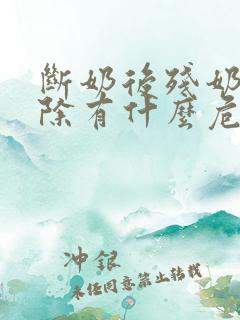 斷奶後殘奶
除有什麼危
冲銀
未经同意禁止转载